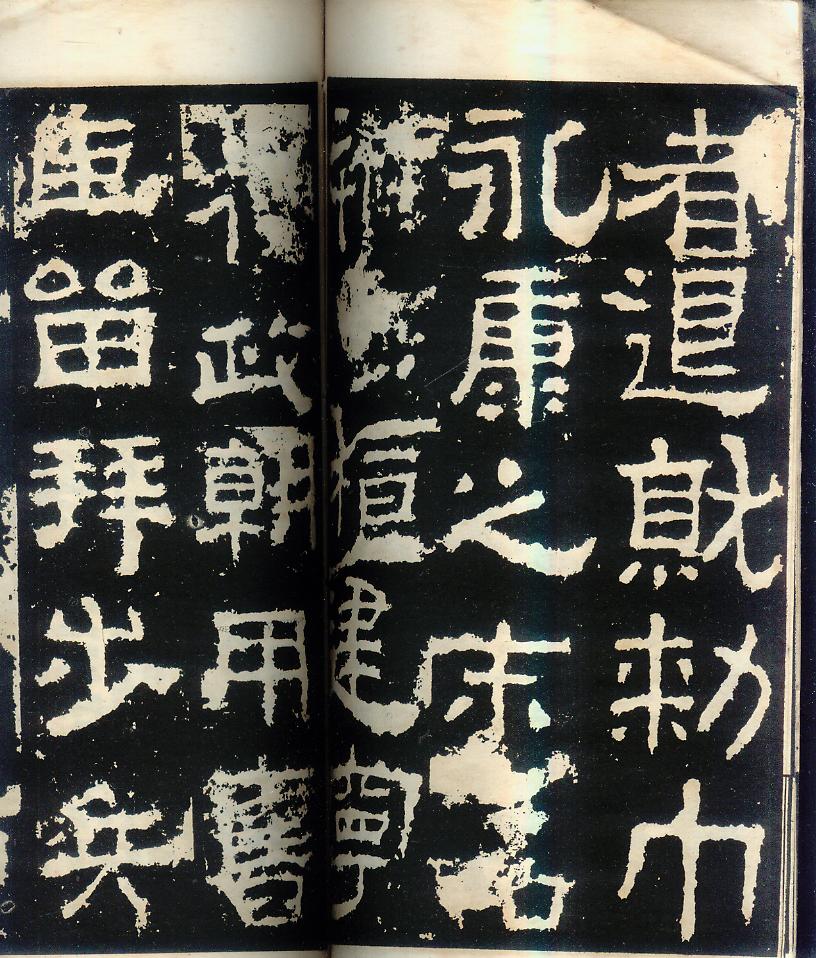 者退就勑巾
永康之末君
衛桓建寧
政朝用舊
臣留拜步兵